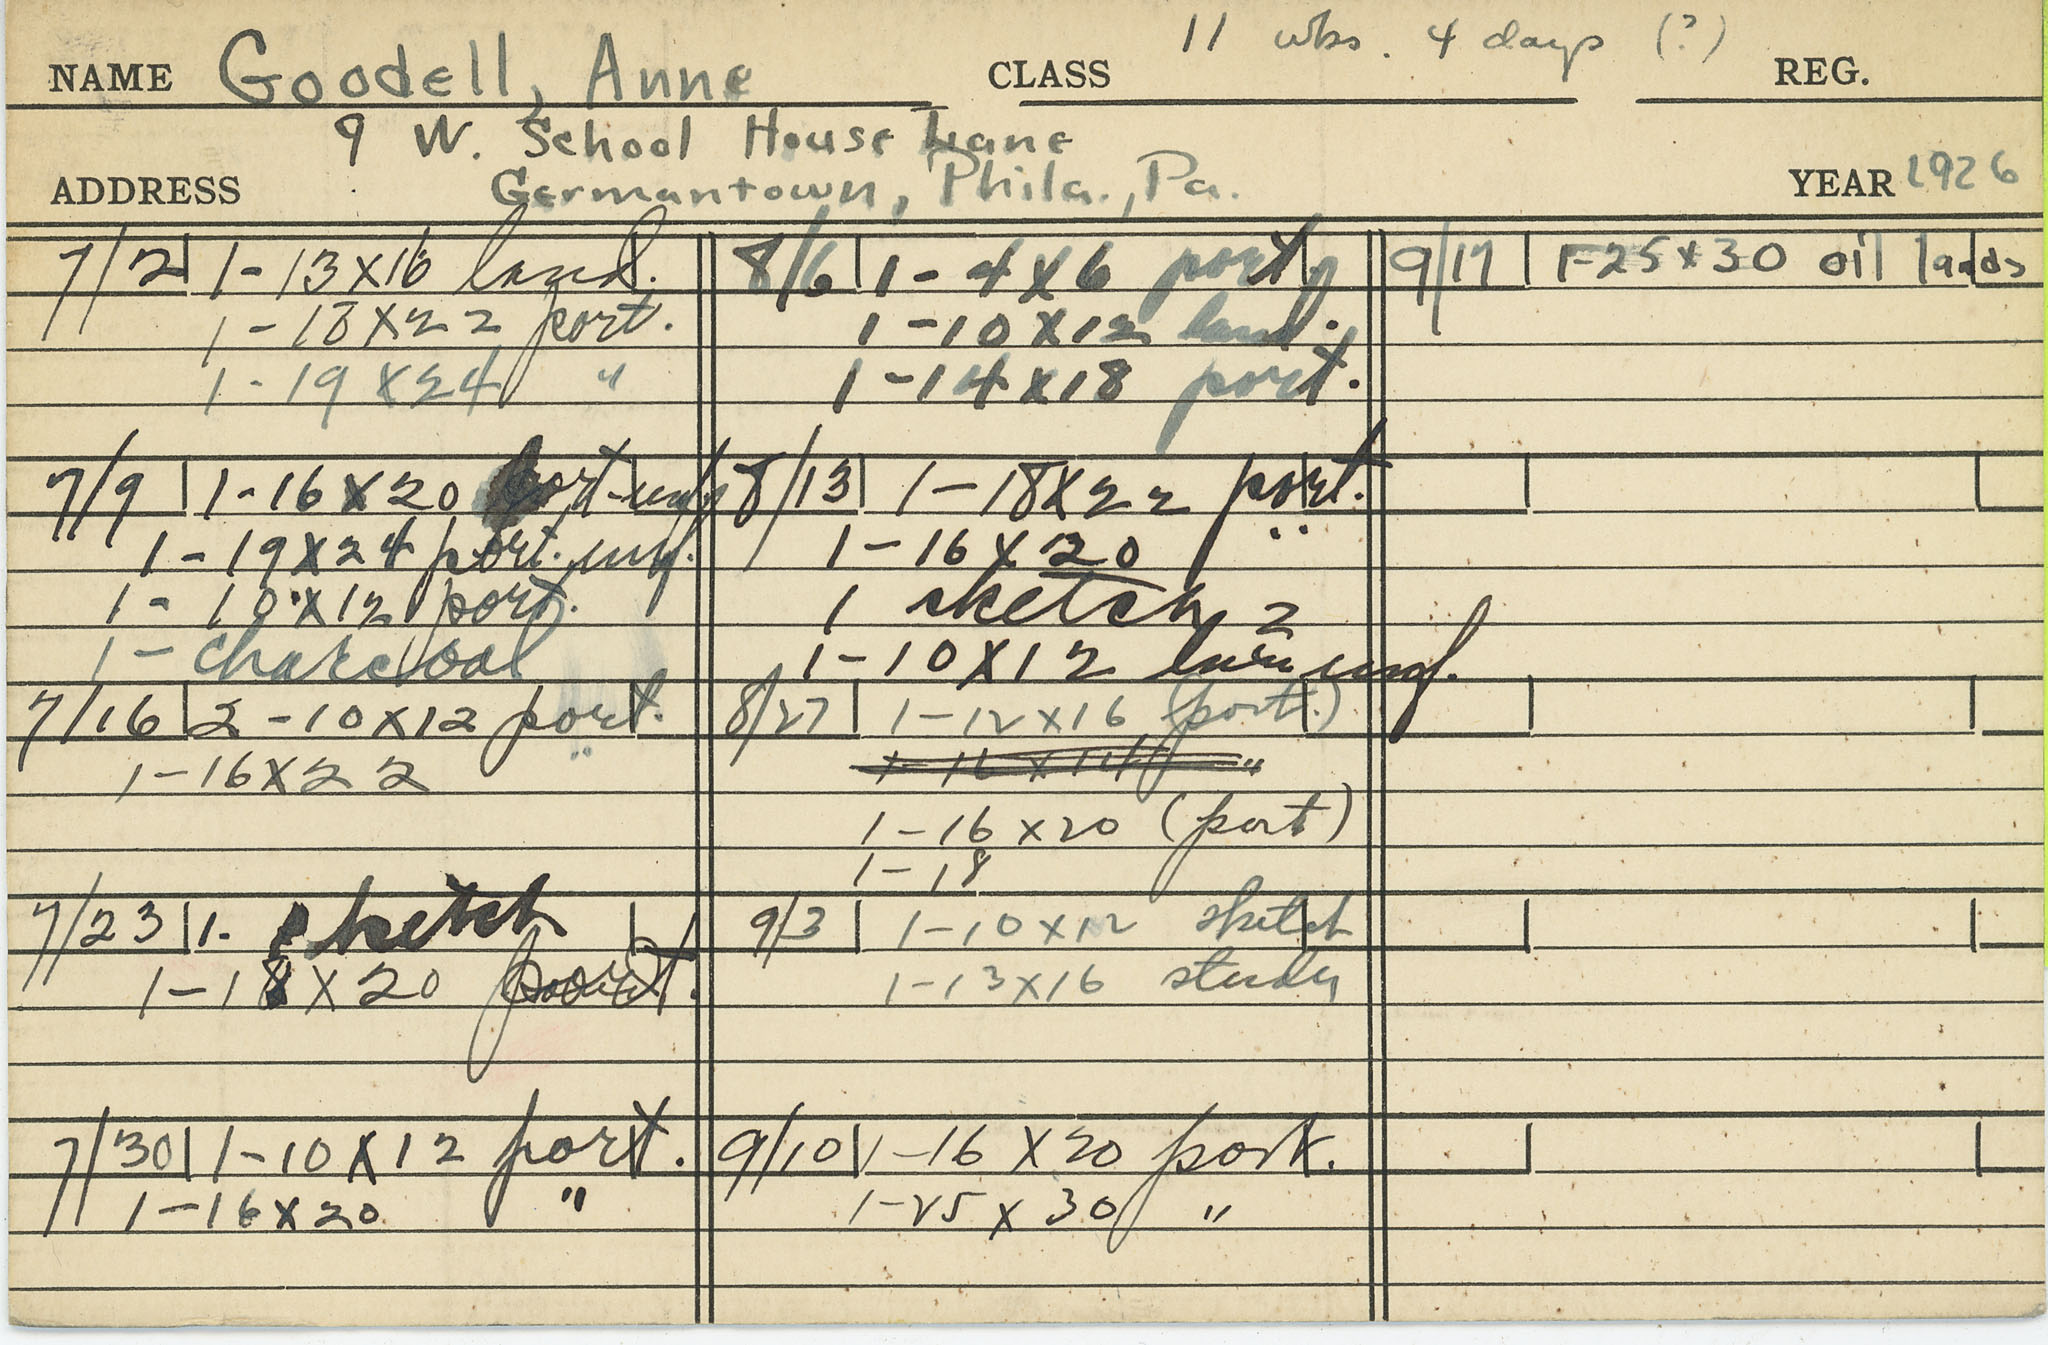 11 wks. 4 days (?)
NAME Goodell, Anne CLASS REG.
9 W. School House Lane
ADDRESS Germantown, Phila., Pa. YEAR 1926
7/2 1-13x16 land.
1-18x22 port.
1-19x24 "
7/9 1-16x20 port-unf
1-19x24 port. unf.
1-10x12 port.
1-charcoal
7/16 2-10x12 port.
1-16x22 "
7/23 1. sketch
1-18x20 port.
7/30 1-10x12 port.
1-16x20 "
8/6 1-4x6 port
1-10x12 land.
1-14x18 port.
8/13 1-18x22 port.
1-16x20 "
1 sketch
1-10x12 unf.
8/27 1-12x16 (port.)
1-16x20 (port)
1-18
9/3 1-10x12 sketch
1-13x16 study
9/10 1-16x20 port.
1-25x30 "
9/17 1-25x30 oil